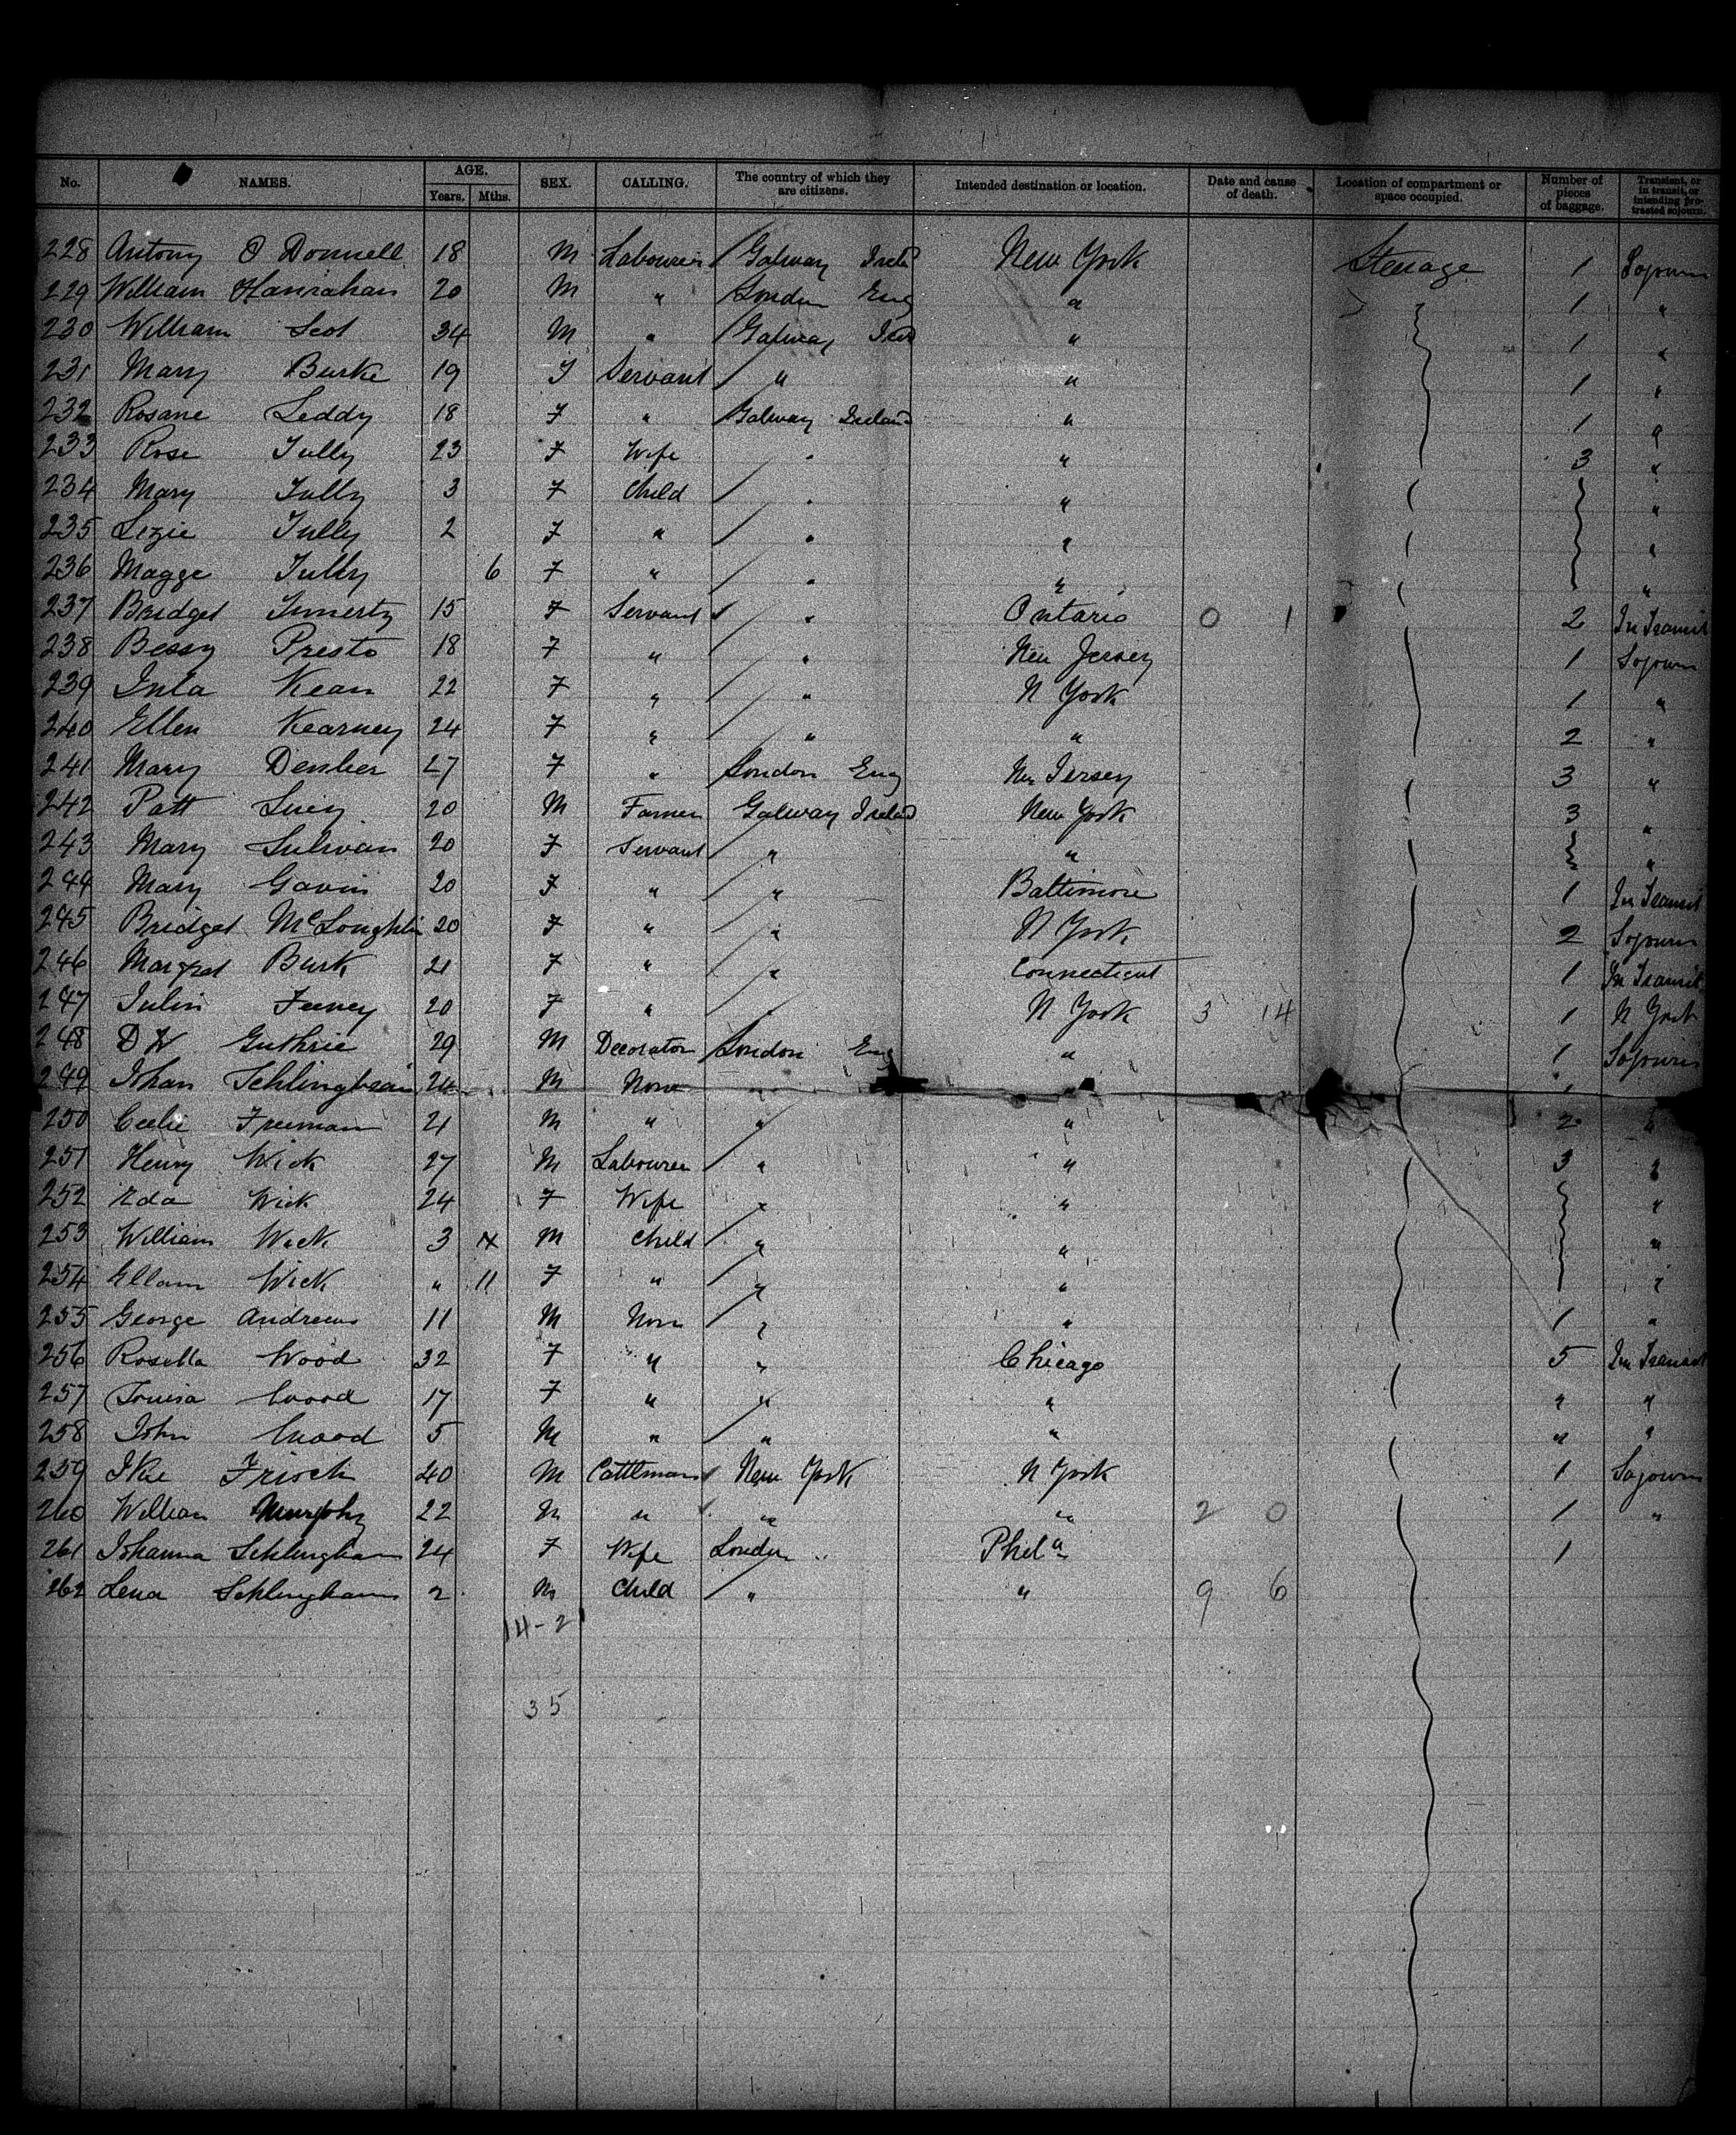 No. NAMES. AGE. Years. Mths. SEX. CALLING. The country of which they are citizens. Intended destination or location. Date and cause of death. Location of compartment or space occupied. Number of pieces of baggage. Transient, or in transit, or intending protracted sojourn.
228 Antony O Donnell 18 M Labourer Galway Irelᵈ New York Steerage 1 Sojourn
229 William Hanrahan 20 M " London Eng " 1 "
230 William Scot 34 M " Galway Ireᵈ " 1 "
231 Mary Burke 19 F Servant " " 1 "
232 Rosane Leddy 18 F " Galway Ireland " 1 "
233 Rose Tully 23 F Wife " " 3 "
234 Mary Tully 3 F Child " " "
235 Lizie Tully 2 F " " " "
236 Magge Tully 6 F " " " "
237 Bridget 15 F Servant " Ontario 0 1 2 In Transit
238 Bessy Presto 18 F " " New Jersey 1 Sojourn
239 Kean 22 F " " N York 1 "
240 Ellen Kearney 24 F " " " 2 "
241 Mary 27 F " London Eng New Jersey 3 "
242 Patt 20 M Farmer Galway Ireland New York 3 "
243 Mary Sulivan 20 F Servant " " "
244 Mary Gavin 20 F " " Baltimore 1 In Transit
245 Bridget McLoughlin 20 F " " N York 2 Sojourn
246 Margret Burk 21 F " " Connecticut 1 In Transit
247 Feeney 20 F " " N York 3 14 1 N York
248 D W Guthrie 29 M Decorator London Eng " 1 Sojourn
249 Johan 24 M None "
250 Freeman 21 M " " " 2 "
251 Henry Wick 27 M Labourer " " 3 "
252 Eda Wick 24 F Wife " " "
253 William Wick 3 M Child " " "
254 Wick " 11 F " " " "
255 George Andrews 11 M None " " 1 "
256 Rosella Wood 32 F " " Chicago 5 In Transit
257 Louisa Wood 17 F " " " " "
258 John Wood 5 M " " " " "
259 Ike Frisch 40 M Cattleman New York N York 1 Sojourn
260 William Murphy 22 M " " " 2 0 1 "
261 Johanna Schlingham 24 F Wife London " Philᵃ 1
262 Lena Schlingham 2 M Child " " 9 6
14-21
35